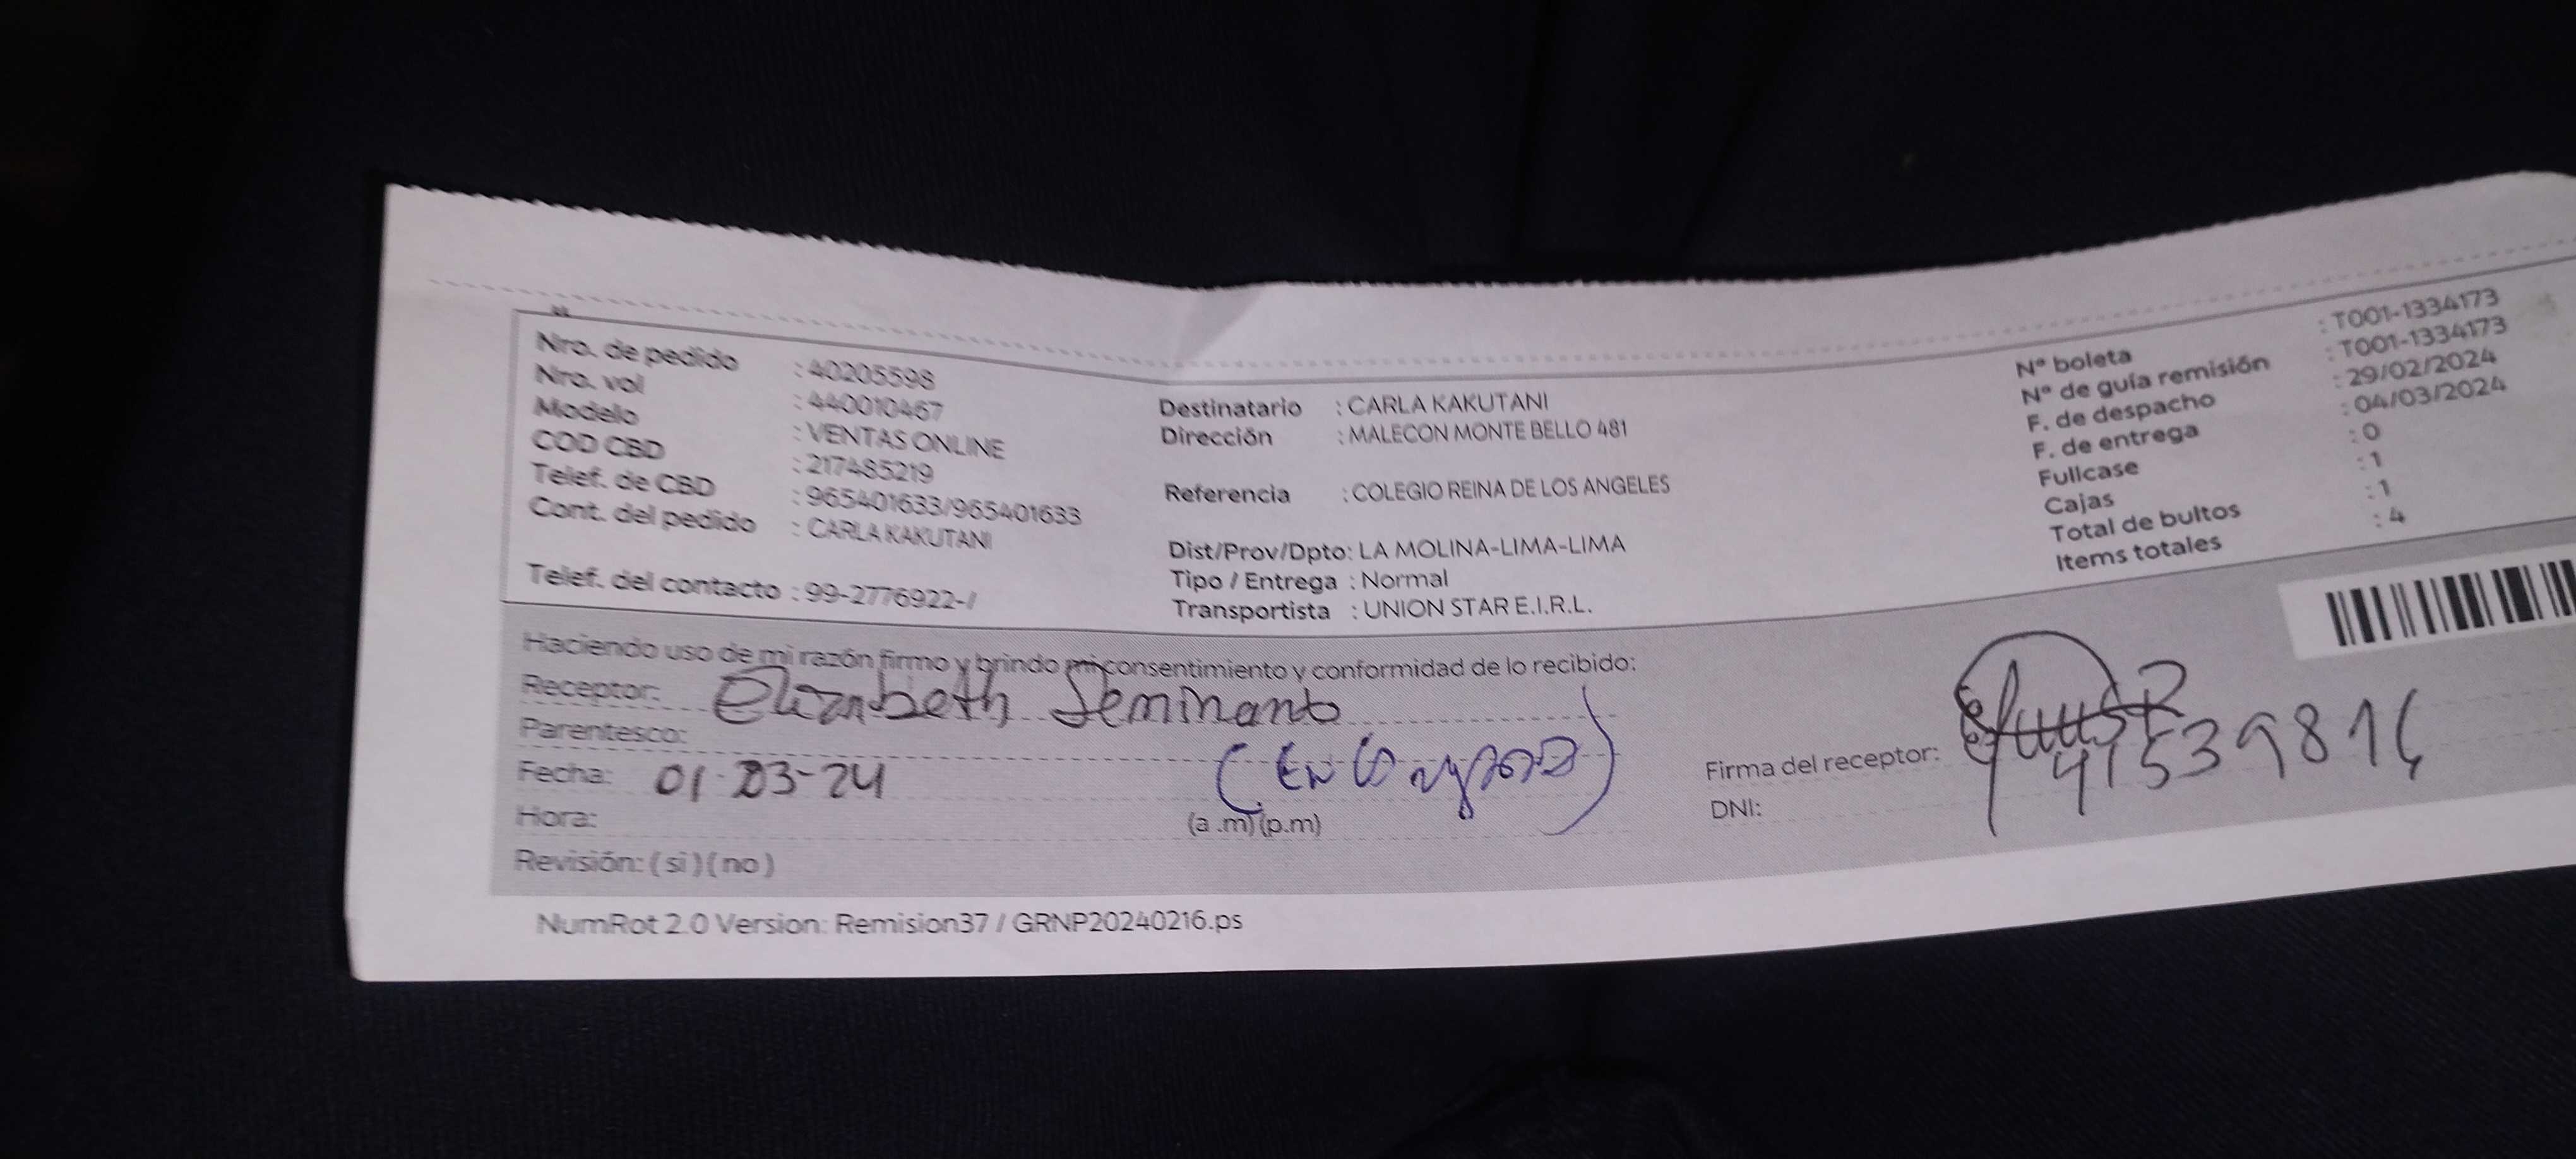 Nro. de pedido : 40205598
Nro. vol : 440010467
Modelo : VENTAS ONLINE
COD CBD : 217485219
Telef. de CBD : 965401633/965401633
Cont. del pedido : CARLA KAKUTANI
Telef. del contacto : 99-2776922-/
Destinatario : CARLA KAKUTANI
Dirección : MALECON MONTE BELLO 481
Referencia : COLEGIO REINA DE LOS ANGELES
Dist/Prov/Dpto: LA MOLINA-LIMA-LIMA
Tipo / Entrega : Normal
Transportista : UNION STAR E.I.R.L.
N° boleta : T001-1334173
N° de guía remisión : T001-1334173
F. de despacho : 29/02/2024
F. de entrega : 04/03/2024
Fullcase : 0
Cajas : 1
Total de bultos : 1
Items totales : 4
Haciendo uso de mi razón firmo y brindo mi consentimiento y conformidad de lo recibido:
Receptor: Elizabeth
Parentesco:
Fecha: 01-03-24
Hora: (a .m) (p.m)
Revisión: ( si ) ( no )
Firma del receptor:
DNI:
NumRot 2.0 Version: Remision37 / GRNP20240216.ps